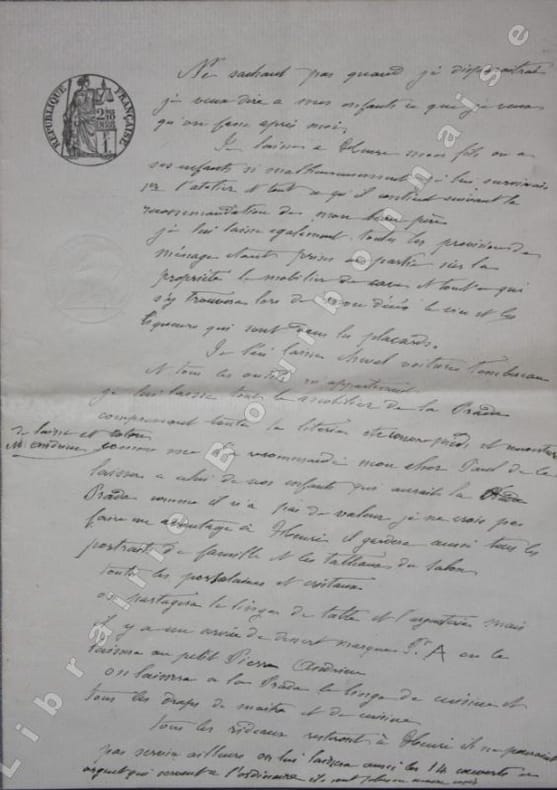 RÉPUBLIQUE FRANÇAISE
Ne sachant pas quand je disparaitrai
je veux dire a mes enfants ce que je veux
qu'on fasse après moi.
Je laisse a Henri mon fils ou a
ses enfants si malheureusement je lui survivais
l'atelier et tout ce qu'il contient suivant la
recommandation de mon beau père
je lui laisse également toutes les provisions de
ménage étant prises en partie sur la
propriété le mobilier de cave et tout ce qui
s'y trouvera lors de mon décès le vin et les
liqueurs qui sont dans les placards.
Je lui laisse cheval voitures tombereau
et tous les outils
je lui laisse tout le mobilier de la Prada
comprenant toute la literie
de laisse et salon
comme me l'a recommandé mon cher Paul de le
laisser a celui de nos enfants qui aurait la Prada
Prada comme il n'a pas de valeur je ne crois pas
faire un avantage à Henri il gardera aussi tous les
portraits de famille et les tableaux du salon
toutes les porcelaines et cristaux
on partagera le linge de table et l'argenterie mais
il y a un service de dessert marqué P. A on le
laissera au petit Pierre Andrieu
on laissera a la Prada le linge de cuisine et
tous les draps de maitre et de cuisine
tous les rideaux resteront à Henri ils ne pouvant
pas servir ailleurs on lui laissera aussi les 14 couverts en
argent qui servent a l'ordinaire
Librairie Bourbonnaise